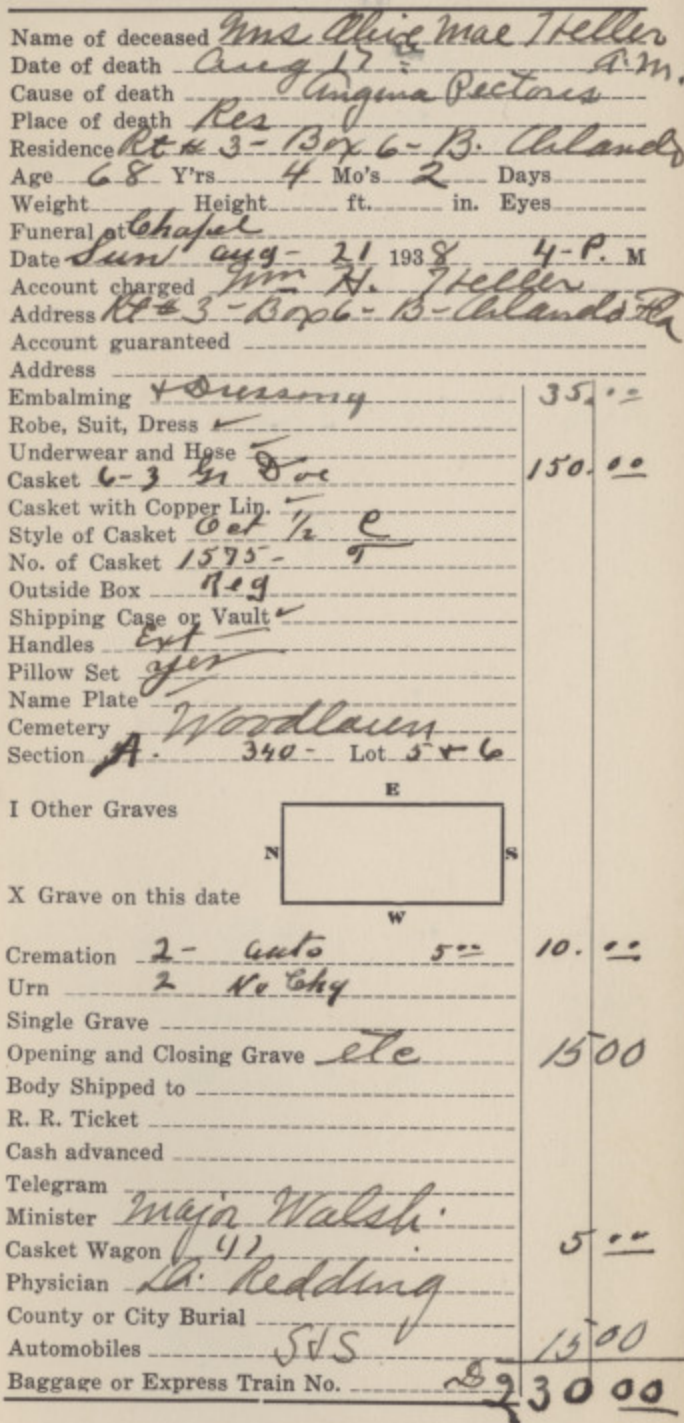 Name of deceased Mrs Olive Mae Heller
Date of death Aug 17 - a.m.
Cause of death Angina Pectoris
Place of death Res
Residence Rt # 3 - Box 6 - B. Orlando
Age 68 Y'rs 4 Mo's 2 Days
Weight Height ft. in. Eyes
Funeral at Chapel
Date Sun Aug - 21 1938 4 - P. M
Account charged Wm H. Heller
Address Rt # 3 - Box 6 - B - Orlando Fla
Account guaranteed
Address
Embalming + Dressing 35.00
Robe, Suit, Dress ✓
Underwear and Hose ✓
Casket 6-3 Gr Doe 150.00
Casket with Copper Lin. ✓
Style of Casket Oct 1/2 C
No. of Casket 1575 - T
Outside Box Reg
Shipping Case or Vault ✓
Handles Ext
Pillow Set yes
Name Plate
Cemetery Woodlawn
Section A. 340 - Lot 5 + 6
E
I Other Graves
N S
X Grave on this date
W
Cremation 2 - auto 5.00 10.00
Urn 2 No Chg
Single Grave
Opening and Closing Grave etc 15 00
Body Shipped to
R. R. Ticket
Cash advanced
Telegram
Minister Major Walsh.
Casket Wagon 5.00
Physician Dr. Redding
County or City Burial
Automobiles S+S 15 00
Baggage or Express Train No. 230 00